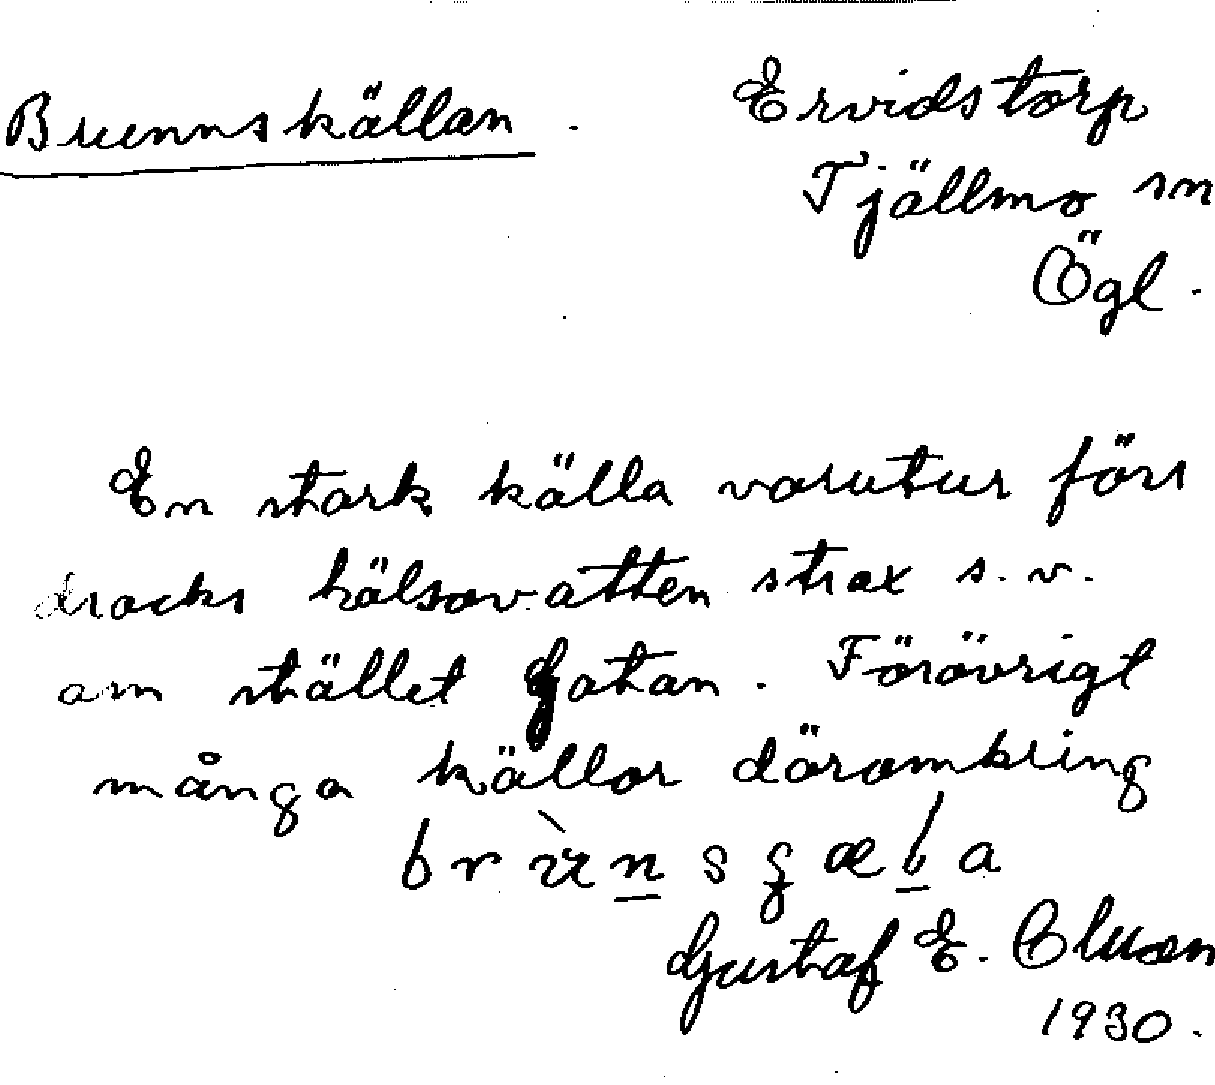 Brunnskällan.
Ervidstorp
Tjällmo sn
Ögl.
En stark källa varutur förr
dracks hälsovatten strax s.v.
om stället Gatan. Förövrigt
många källor däromkring
Gustaf E. Cluson
1930.